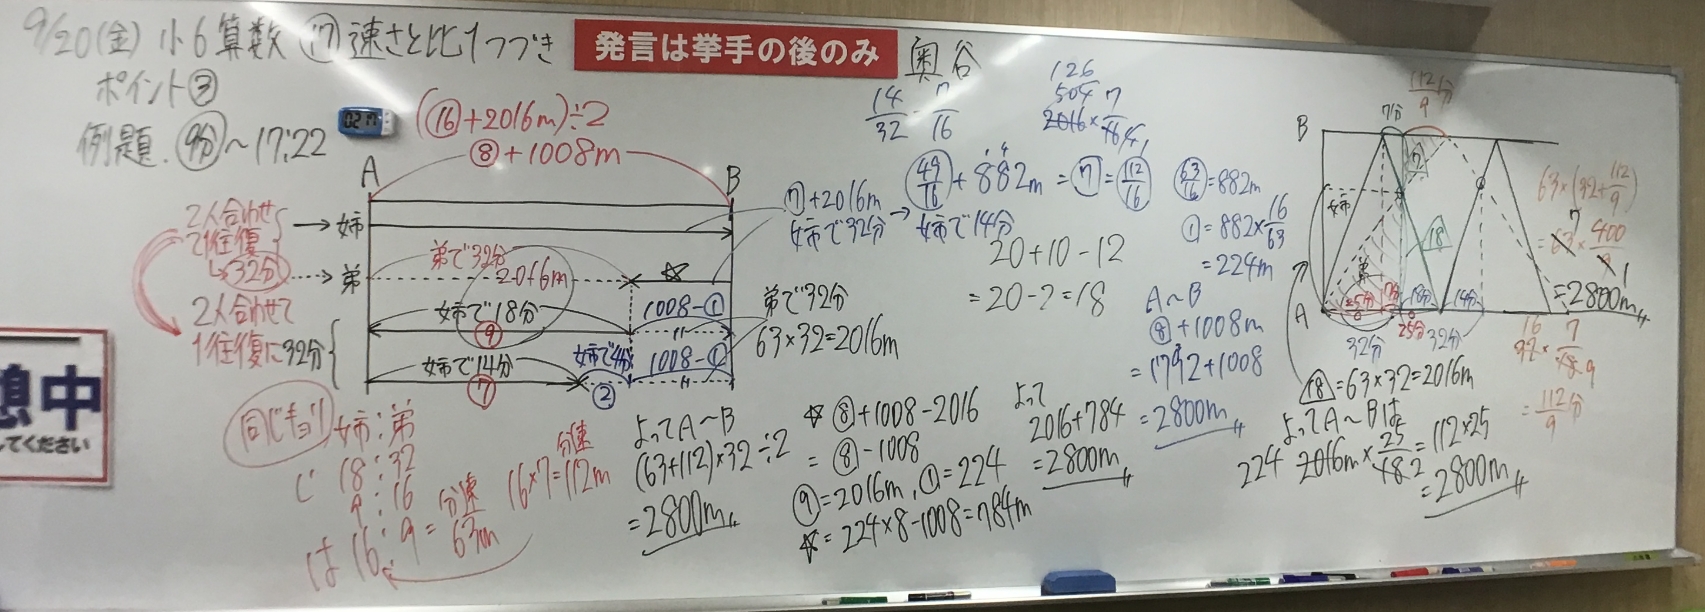 9/20(金) 小6算数 ⑰速さと比1つづき
発言は挙手の後のみ
奥谷
ポイント③
例題. 9分～17:22
(⑯+2016m)÷2
⑧+1008m
A
B
2人合わせ
て1往復
↳32分
→姉
→弟
2人合わせて
1往復に32分
弟で32分
2016m
☆
姉で18分
⑨
1008-①
姉で14分
⑦
姉で4分
②
1008-①
⑦+2016m
姉で32分
弟で32分
63×32=2016m
14/32=7/16
126
504
2016×7/16
49/16+882m=⑦=112/16
姉で14分
63/16=882m
①=882×16/63
=224m
20+10-12
=20-2=18
A～B
⑧+1008m
=1792+1008
=2800m
同じキョリ
姉:弟
じ 18:32
9:16
は 16:9=分速63m
分速
16×7=112m
よってA～B
(63+112)×32÷2
=2800m
☆ ⑧+1008-2016
=⑧-1008
⑨=2016m, ①=224
☆=224×8-1008=784m
よって
2016+784
=2800m
B
A
7分
112/9分
姉
弟
18
32分
32分
14分
25分
18=63×32=2016m
よってA～Bは
224
2016m×25/18 2=112×25
=2800m
=63×400/9
=2800m
=112/9分